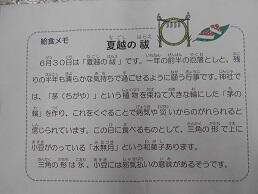 給食メモ
夏越の祓
なごし はらえ
6月30日は「夏越の祓」です。一年の前半の厄落としと、残
りの半年も清らかな気持ちで過ごせるように願う行事です。神社で
は、「茅（ちがや）」という植物を束ねて大きな輪にした「茅の
輪」を作り、これをくぐることで病気や災いからのがれられると
信じられています。この日に食べるものとして、三角の形で上に
小豆がのっている「水無月」という和菓子があります。
三角の形は氷、小豆には邪気払いの意味があるそうです。